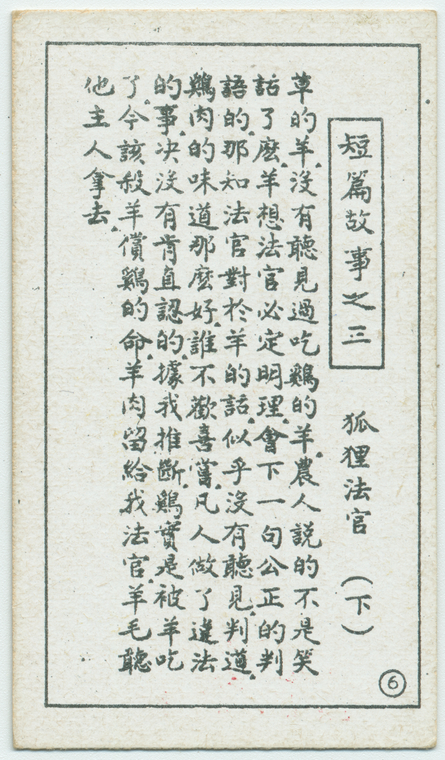 短篇故事之三
狐狸法官 (下)
草的羊.沒有聽見過吃鷄的羊.農人說的不是笑
話了麽.羊想法官必定明理.會下一句公正的判
語的.那知法官對於羊的話.似乎沒有聽見.判道.
鷄肉的味道那麽好.誰不歡喜嘗.凡人做了違法
的事.决沒有肯直認的.據我推斷.鷄實是被羊吃
了.今該殺羊償鷄的命.羊肉留給我法官.羊毛聽
他主人拿去.
6